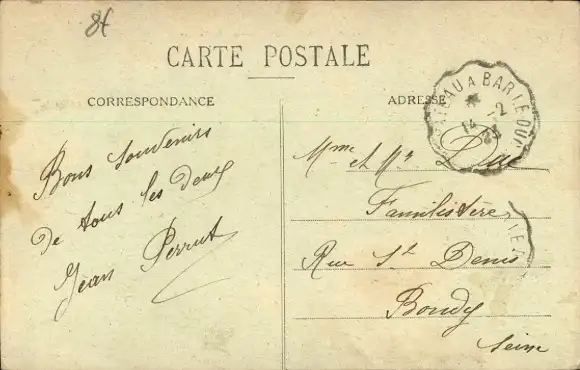 8f
CARTE POSTALE
CORRESPONDANCE
ADRESSE
EAU A BAR LE DUC
14 -2
23
Bons souvenirs
de tous les deux
Jean Perrut
Mme et Mr Duc
Familistère
Rue St Denis
Bondy
Seine